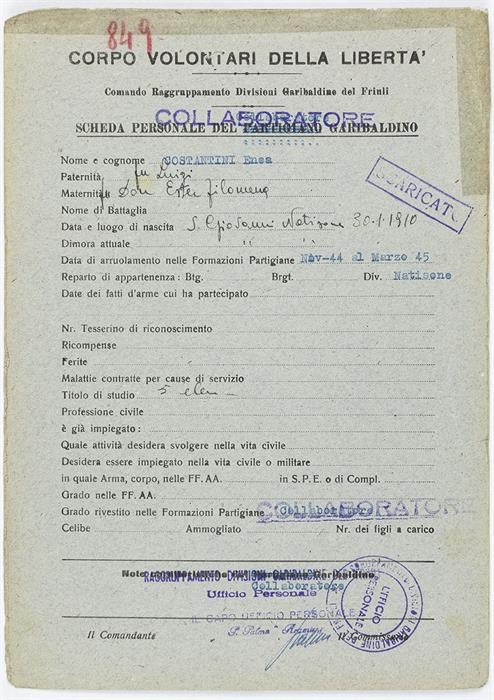 849
CORPO VOLONTARI DELLA LIBERTA'
Comando Raggruppamento Divisioni Garibaldine del Friuli
COLLABORATORE
SCHEDA PERSONALE DEL PARTIGIANO GARIBALDINO
Nome e cognome COSTANTINI Enea
Paternità fu Luigi
SCARICATO
Maternità fu Don Ester filomena
Nome di Battaglia
Data e luogo di nascita S. Giovanni Natisone 30-1-1910
Dimora attuale " "
Data di arruolamento nelle Formazioni Partigiane Nov-44 al Marzo 45
Reparto di appartenenza: Btg. Brgt. Div. Natisone
Date dei fatti d'arme cui ha partecipato
Nr. Tesserino di riconoscimento
Ricompense
Ferite
Malattie contratte per cause di servizio
Titolo di studio 5 elem
Professione civile
è già impiegato:
Quale attività desidera svolgere nella vita civile
Desidera essere impiegato nella vita civile o militare
in quale Arma, corpo, nelle FF. AA. in S. P. E. o di Compl.
Grado nelle FF. AA.
COLLABORATORE
Grado rivestito nelle Formazioni Partigiane Collaboratore
Celibe Ammogliato Nr. dei figli a carico
RAGGRUPPAMENTO DIVISIONI GARIBALDINE
Collaboratore
Ufficio Personale
IL CAPO UFFICIO PERSONALE
UFFICIO PERSONALE
Il Comandante Il Commissario